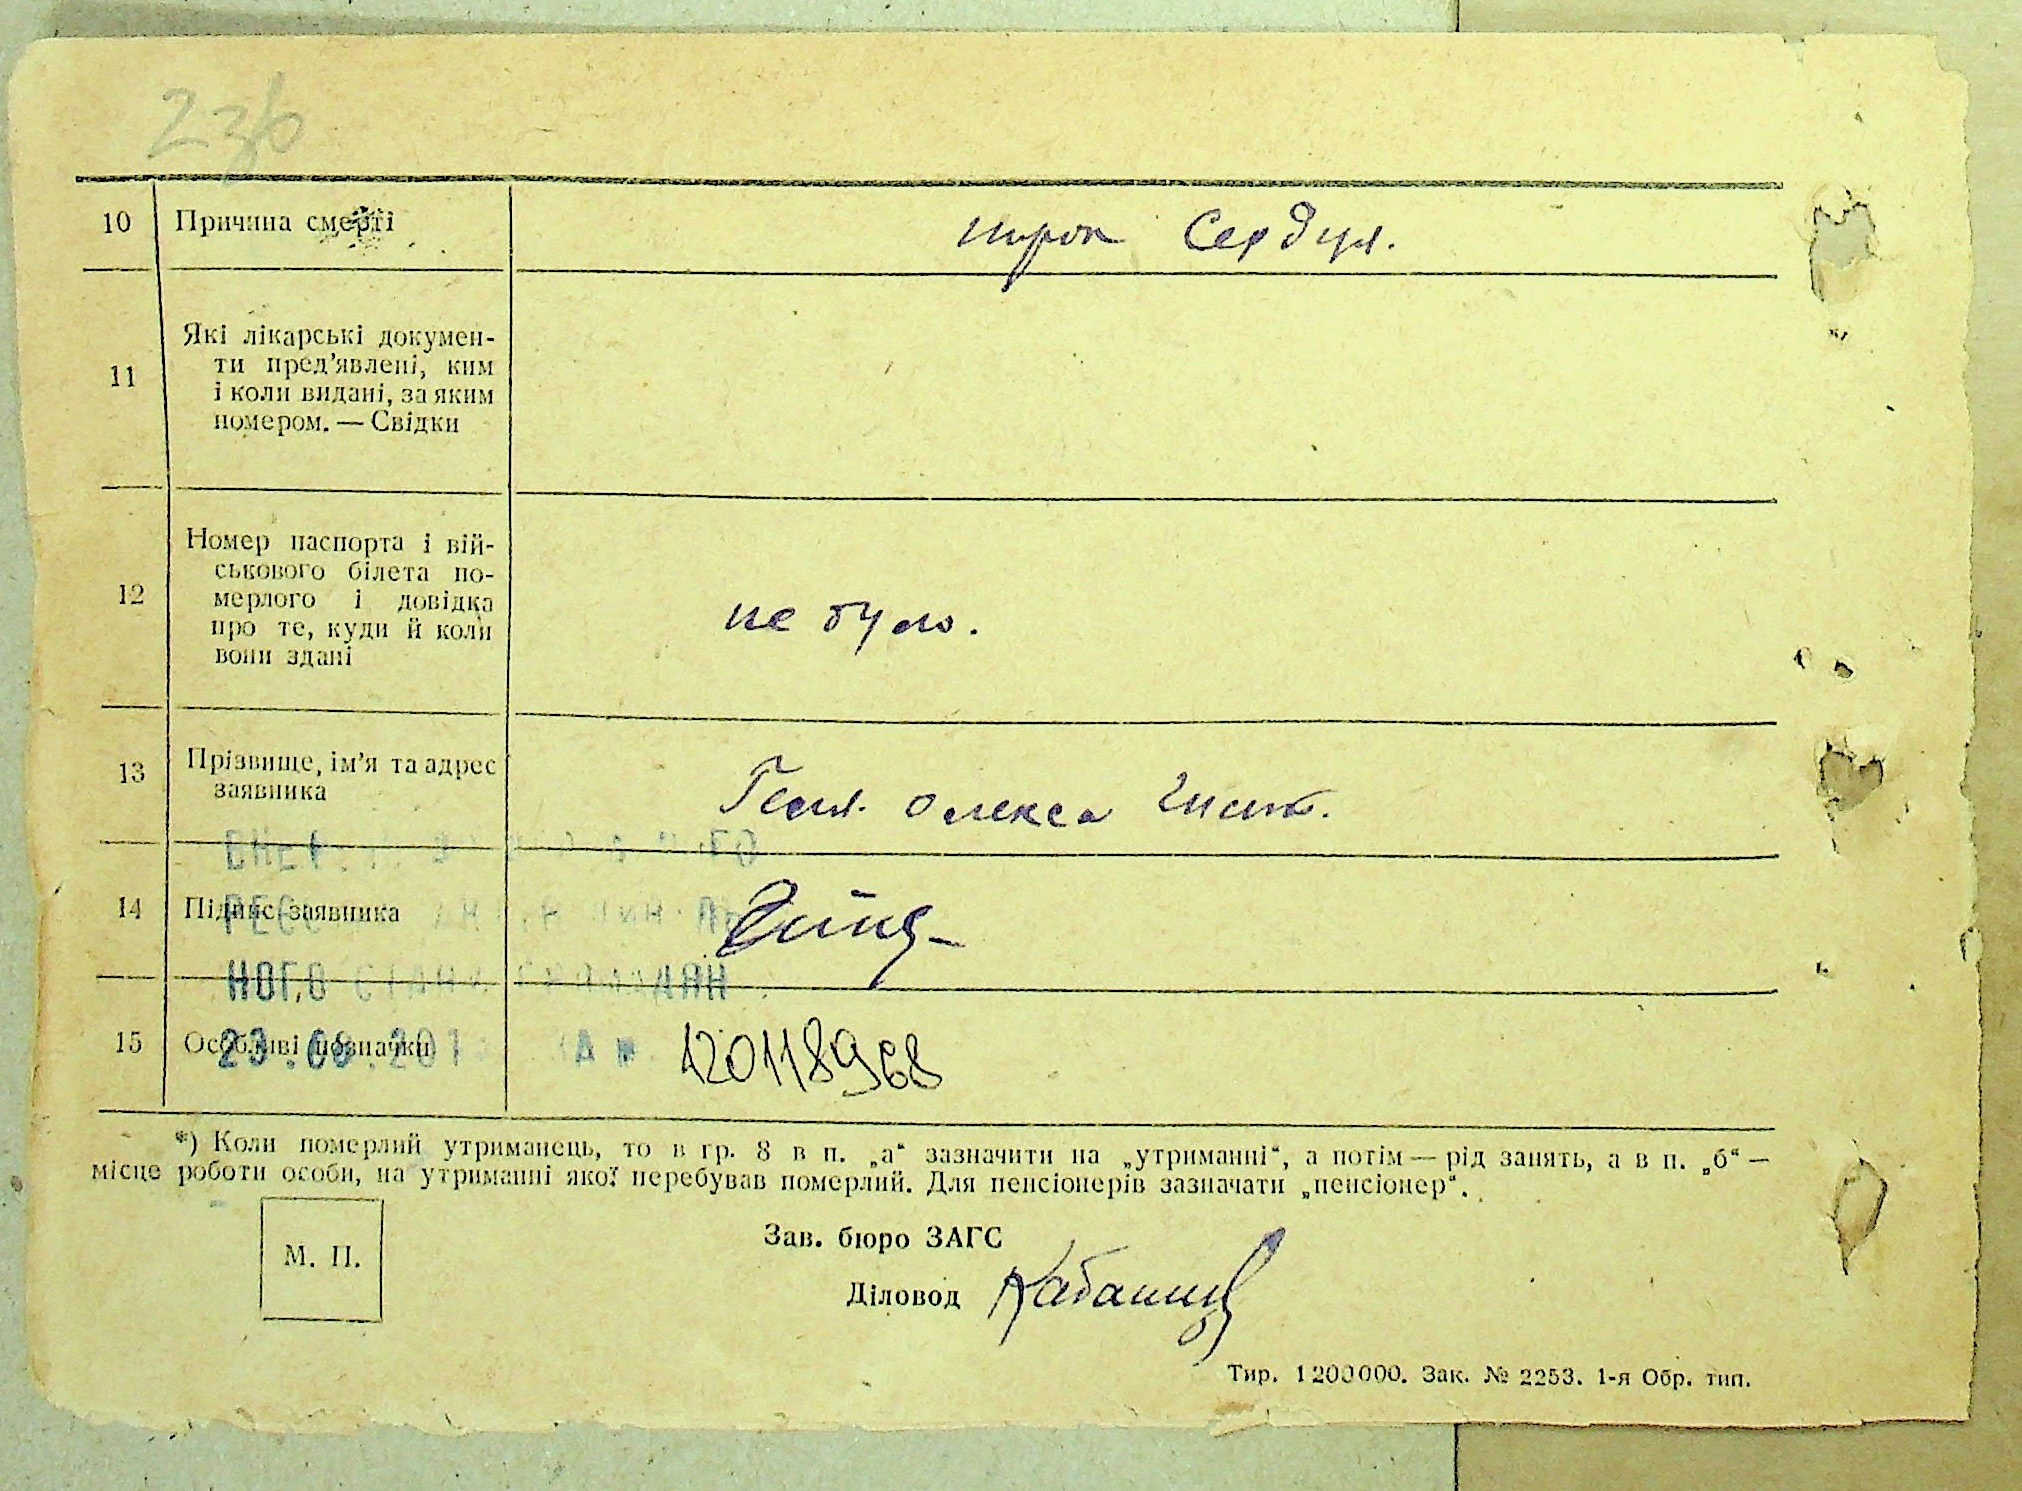 236
10 Причина смерті порок Сердця.
11 Які лікарські докумен-
ти пред’явлені, ким
і коли видані, за яким
номером. — Свідки
12 Номер паспорта і вій-
ськового білета по-
мерлого і довідка
про те, куди й коли
вони здані
не було.
13 Прізвище, ім’я та адрес
заявника
Олекса
14 Підпис заявника
НОГО СТАНУ ГРОМАДЯН
15 Особливі позначки 120118968
*) Коли померлий утриманець, то в гр. 8 в п. „а“ зазначити на „утриманні“, а потім — рід занять, а в п. „б“ —
місце роботи особи, на утриманні якої перебував померлий. Для пенсіонерів зазначати „пенсіонер“.
М. П.
Зав. бюро ЗАГС
Діловод
Тир. 1200000. Зак. № 2253. 1-я Обр. тип.